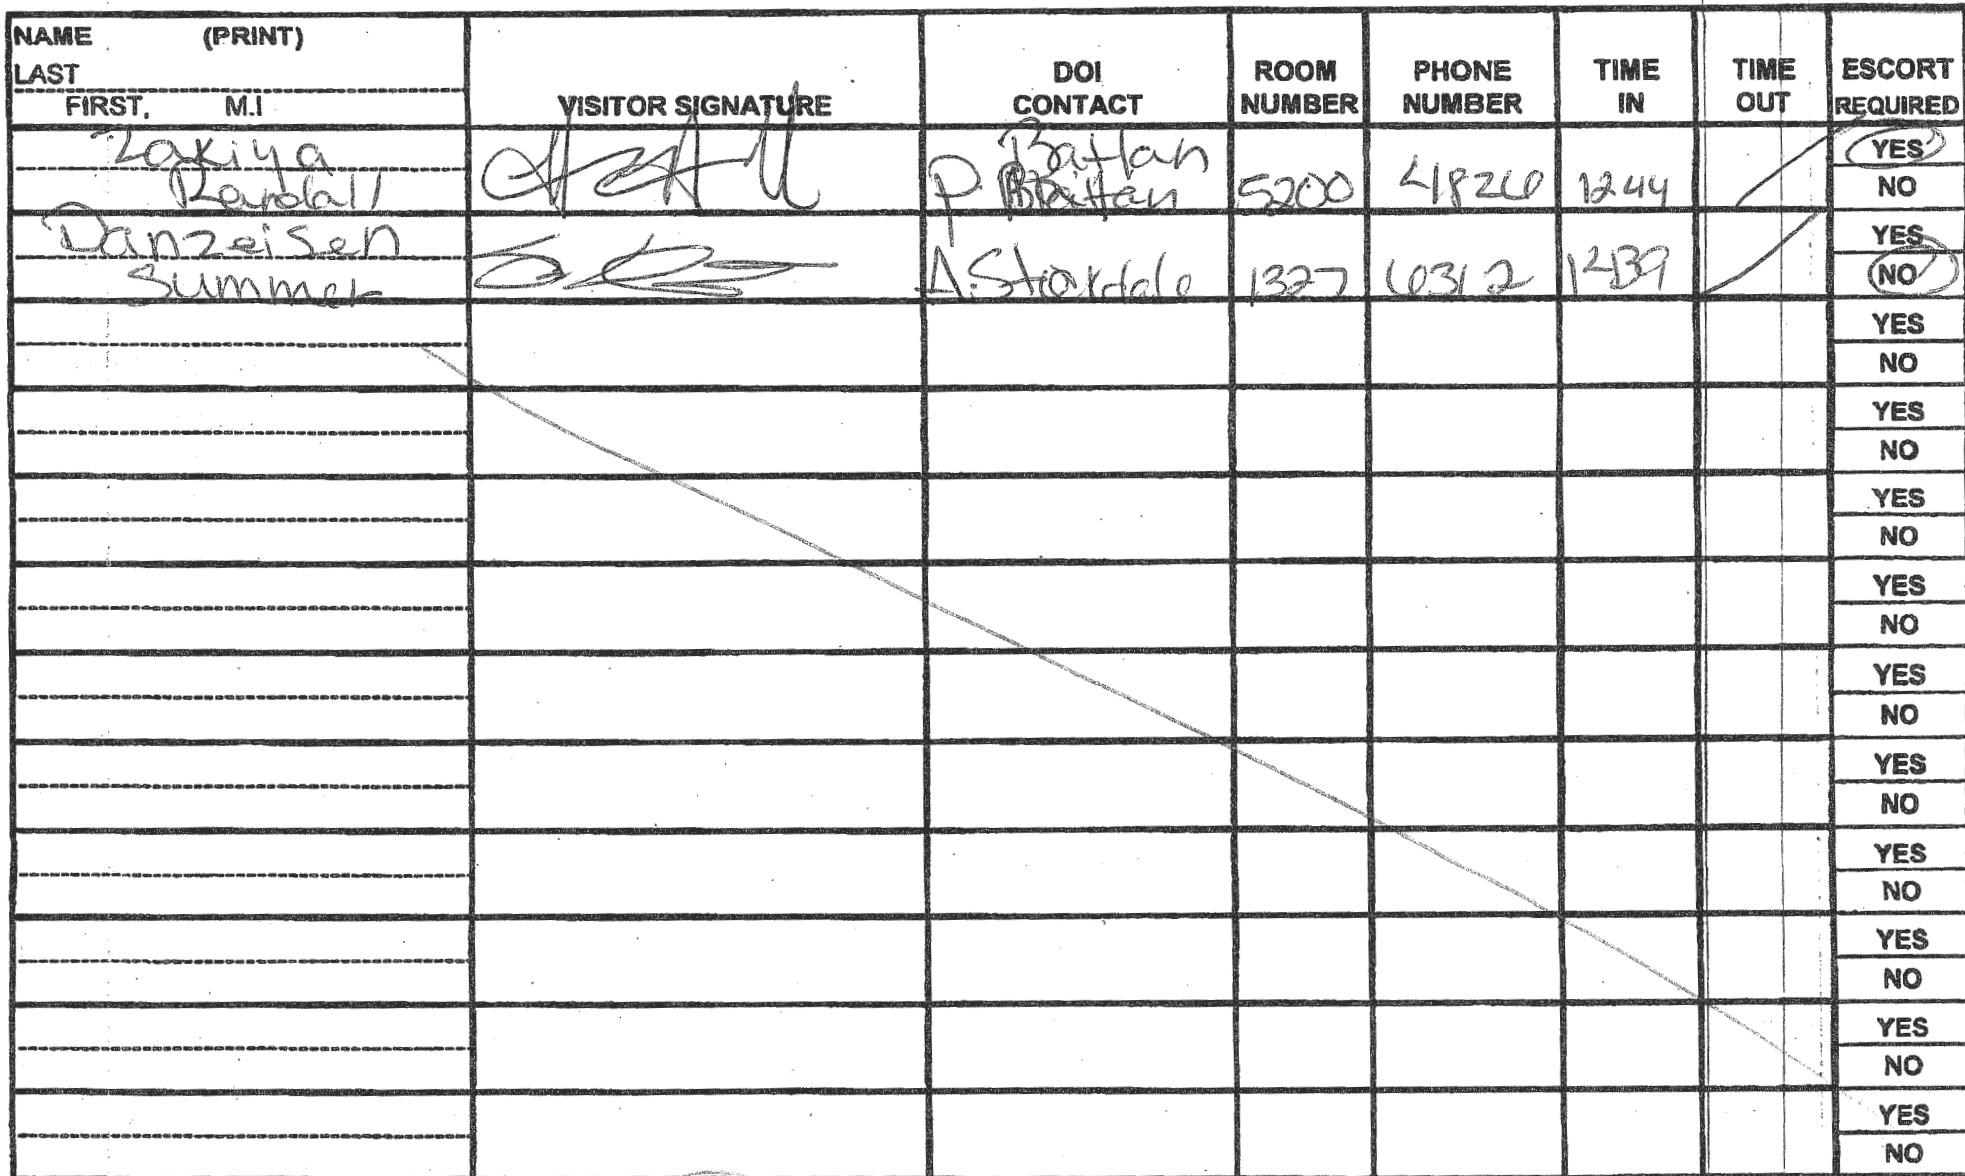 NAME (PRINT)
LAST
FIRST, M.I
VISITOR SIGNATURE
DOI CONTACT
ROOM NUMBER
PHONE NUMBER
TIME IN
TIME OUT
ESCORT REQUIRED
Zakiya
Randall
Battan
P. Brattan
5200
41826
1244
YES
NO
Danzeisen
Summer
A. Stovrdale
1327
6312
1239
YES
NO
YES
NO
YES
NO
YES
NO
YES
NO
YES
NO
YES
NO
YES
NO
YES
NO
YES
NO
YES
NO